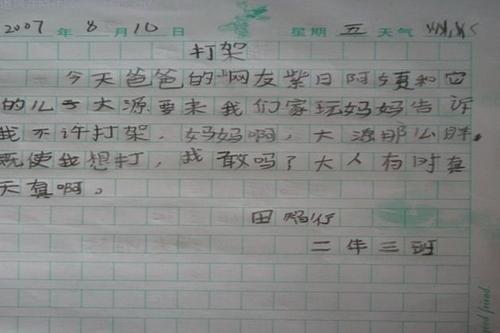 2007年8月10日 星期五 天气
打架
今天爸爸的网友紫日阿姨和它
的儿子大源要来我们家玩妈妈告诉
我不许打架。妈妈啊，大源那么胖。
既使我想打，我敢吗？大人有时真
天真啊。
田
二年三班